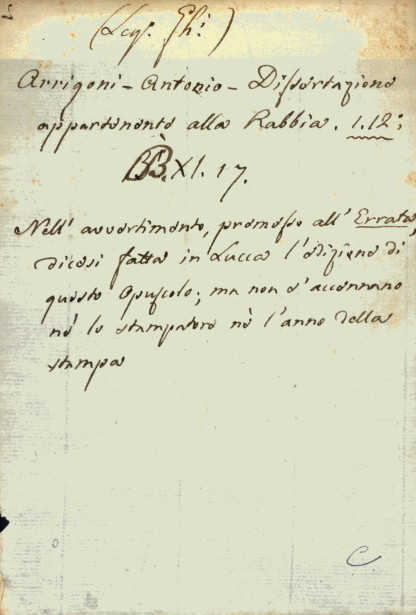 (Leg. Ghi.)
Arrigoni - Antonio - Dissertazione
appartenente alla Rabbia. 1.12;
BB. XI. 17.
Nell' avvertimento, premesso all' Errata,
dicesi fatta in Lucca l'edizione di
questo Opuscolo; ma non s'accennano
nè lo stampatore nè l'anno della
stampa
C